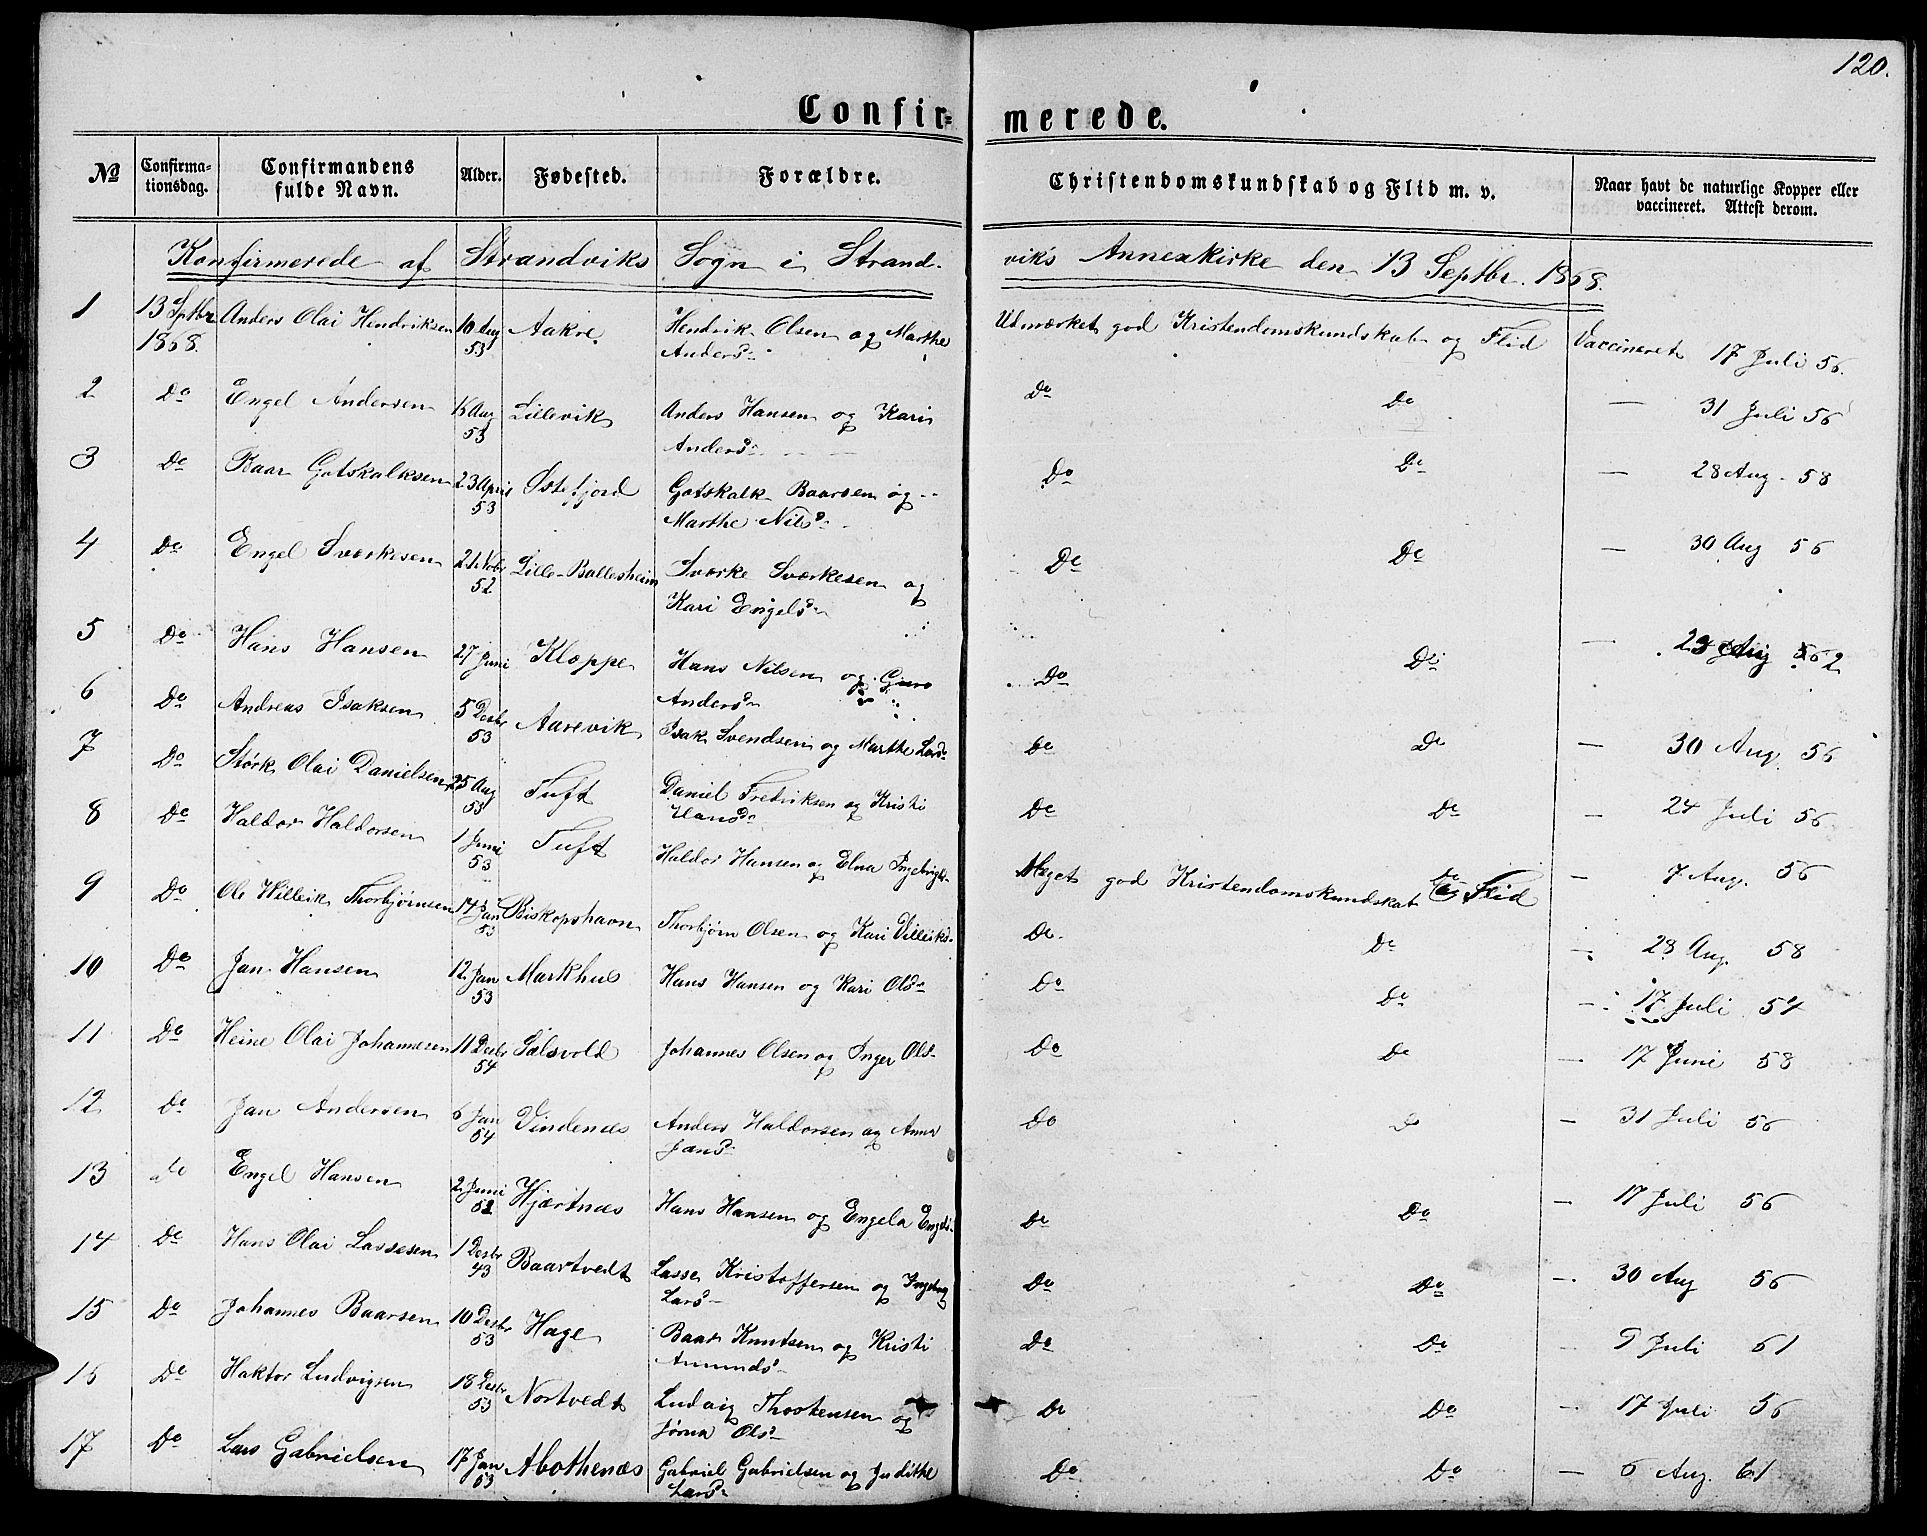 120.
Confir- merede.
No Confirma-tionsdag. Confirmandens fulde Navn. Alder. Fødested. Forældre. Christendomskundskab og Flid m. v. Naar havt de naturlige Kopper eller vaccineret. Attest derom.
Konfirmerede af Strandviks Sogn i Strand- viks Annexkirke den 13 Septbr. 1868.
1 13 Sptbr 1868. Anders Olai Hendriksen 10 Aug 53 Aakre. Hendrik Olsen og Marthe Andersd. Udmærket god Kristendomskundskab og Flid Vaccineret 17 Juli 56.
2 Do Engel Andersen 16 Aug 53 Lillevik Anders Hansen og Kari Andersd. Do Do — 31 Juli 56
3 Do Baar Gotskalksen 23 April 53 Østefjord Gotskalk Baarsen og Marthe Nilsd. Do Do — 28 Aug. 58
4 Do Engel Sværkesen 21 Nobr 52 Lille-Ballesheim Sværke Sværkesen og Kari Engelsd. Do Do — 30 Aug 56
5 Do Hans Hansen 27 Juni Kloppe Hans Nilsen og Guro Andersd. Do Do — Aug
6 Do Andreas Isaksen 5 Desbr 53 Aarevik Isak Svendsen og Marthe Larsd. Do Do — 30 Aug. 56
7 Do Størk Olai Danielsen 25 Aug 53 Tuft Daniel Fredriksen og Kristi Hansd. Do Do — 24 Juli 56
8 Do Haldor Haldorsen 1 Juni 53 Tuft Haldor Hansen og Elna Ingebrigtsd. Meget god Kristendomskundskab og Flid — 7 Aug. 56
9 Do Ole Willeik Thorbjørnsen 14 Jan 53 Biskopshavn Thorbjørn Olsen og Kari Villeiksd. Do. Do — 28 Aug. 58
10 Do Jan Hansen 12 Jan 53 Markhus Hans Hansen og Kari Olsd. Do Do — 17 Juli 54
11 Do Heine Olai Johannesen 11 Desbr 54 Sælsvold Johannes Olsen og Inger Olsd. Do Do — 17 Juni 58
12 Do Jan Andersen 6 Jan 54 Vindenæs Anders Haldorsen og Anna Jansd. Do Do — 31 Juli 56
13 Do Engel Hansen 2 Juni Hjærtnæs Hans Hansen og Engela Engelsd. Do Do — 17 Juli 56
14 Do Hans Olai Lassesen 1 Desbr 43 Baartvedt Lasse Kristoffersen og Ingeborg Larsd. Do Do — 30 Aug 56
15 Do Johannes Baarsen 10 Desbr 53 Hage Baar Knutsen og Kristi Amundsd. Do Do 9 Juli 61
16 Do Haktor Ludvigsen 18 Desbr 53 Nortvedt Ludvig Thostensen og Jørna Olsd. Do Do — 17 Juli 56
17 Do Lars Gabrielsen 17 Jan 53 Abothenæs Gabriel Gabrielsen og Judithe Larsd. Do Do — 6 Aug. 61